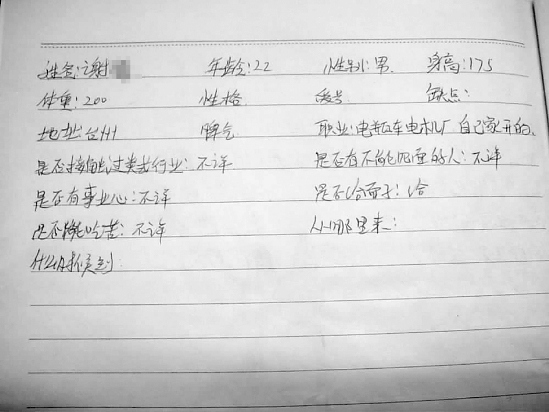 姓名:谢 年龄:22 性别:男. 身高:175
体重:200 性格 爱好 缺点:
地址:台州 脾气 职业:电瓶车电机厂自己家开的.
是否接触过类我行业:不详 是否有不能见面的人:不详
是否有事业心:不详 是否给面子:给
是否能吃苦:不详 从哪里来:
什么时候到